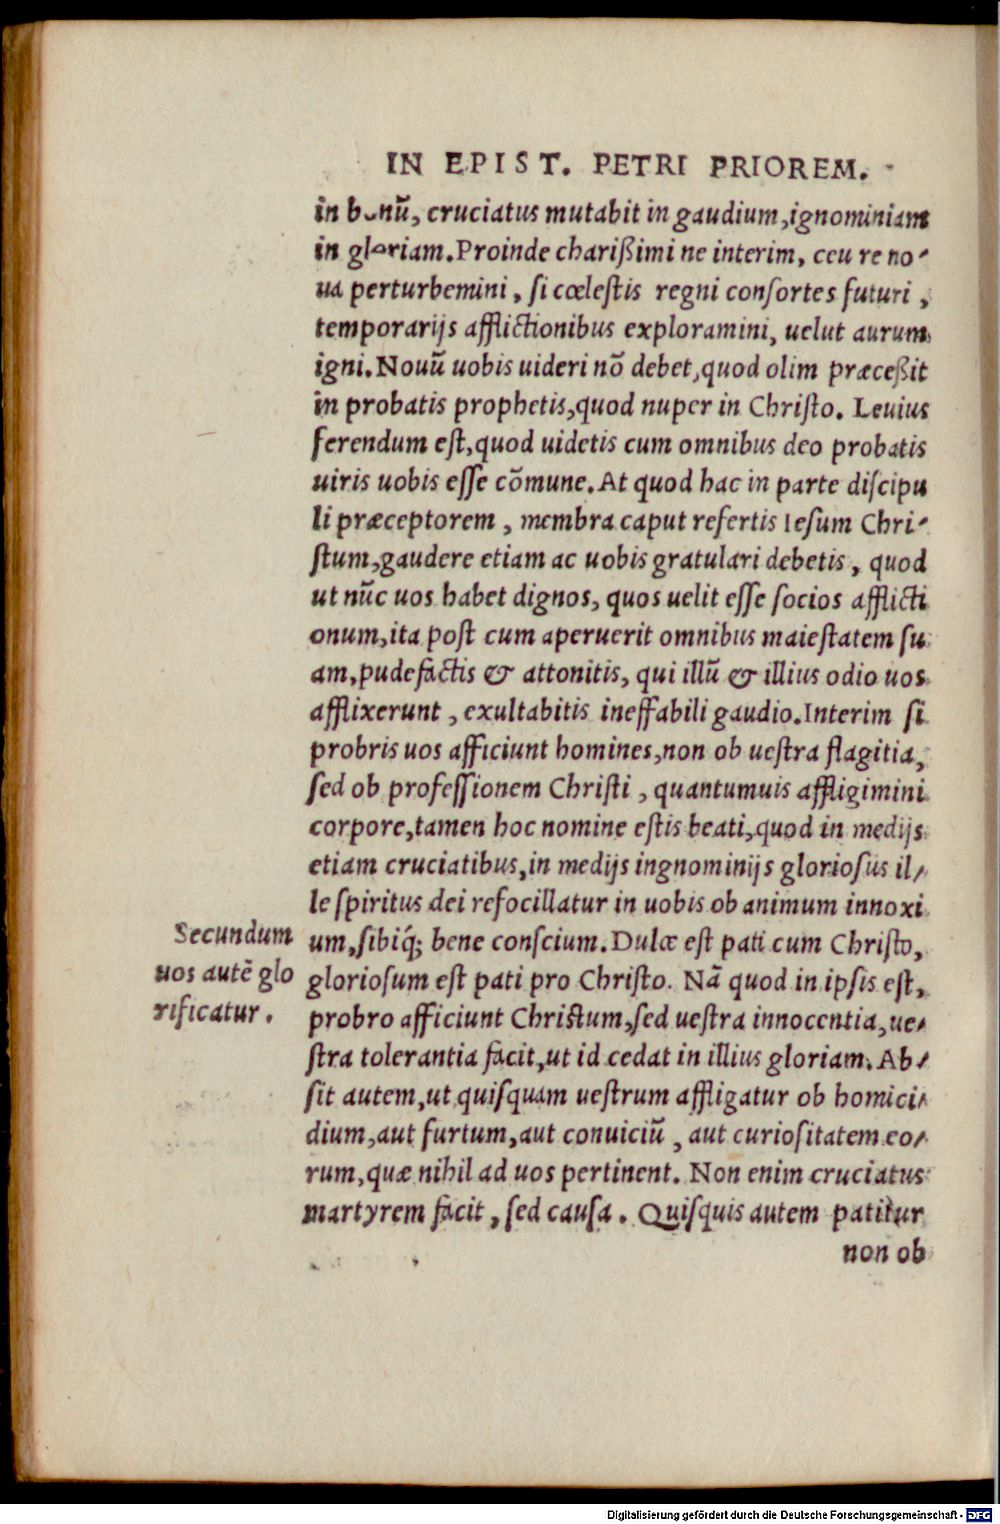 IN EPIST. PETRI PRIOREM.
in bonũ, cruciatus mutabit in gaudium, ignominiam
in gloriam. Proinde charißimi ne interim, ceu re no-
ua perturbemini, si cœlestis regni consortes futuri,
temporarijs afflictionibus exploramini, uelut aurum
igni. Nouũ uobis uideri nõ debet, quod olim præceßit
in probatis prophetis, quod nuper in Christo. Leuius
ferendum est, quod uidetis cum omnibus deo probatis
uiris uobis esse cõmune. At quod hac in parte discipu
li præceptorem, membra caput refertis Iesum Chri-
stum, gaudere etiam ac uobis gratulari debetis, quod
ut nũc uos habet dignos, quos uelit esse socios afflicti
onum, ita post cum aperuerit omnibus maiestatem su
am, pudefactis & attonitis, qui illũ & illius odio uos
afflixerunt, exultabitis ineffabili gaudio. Interim si
probris uos afficiunt homines, non ob uestra flagitia,
sed ob professionem Christi, quantumuis affligimini
corpore, tamen hoc nomine estis beati, quod in medijs
etiam cruciatibus, in medijs ingnominijs gloriosus il-
le spiritus dei refocillatur in uobis ob animum innoxi
um, sibiq́; bene conscium. Dulce est pati cum Christo,
gloriosum est pati pro Christo. Nã quod in ipsis est,
probro afficiunt Christum, sed uestra innocentia, ue-
stra tolerantia facit, ut id cedat in illius gloriam. Ab-
sit autem, ut quisquam uestrum affligatur ob homici-
dium, aut furtum, aut conuiciũ, aut curiositatem eo-
rum, quæ nihil ad uos pertinent. Non enim cruciatus
martyrem facit, sed causa. Quisquis autem patitur
non ob
Secundum
uos autẽ glo
rificatur.
Digitalisierung gefördert durch die Deutsche Forschungsgemeinschaft - DFG